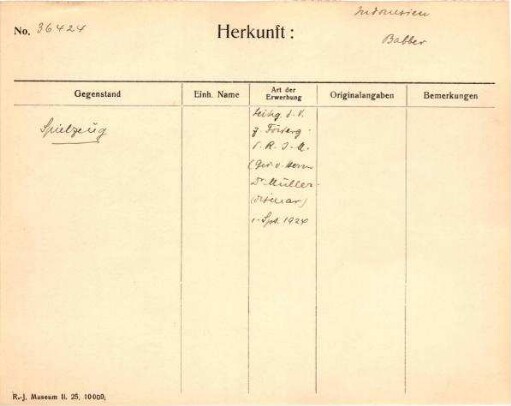 Indonesien
No. 36424 Herkunft: Babber
Gegenstand Einh. Name Art der Erwerbung Originalangaben Bemerkungen
Spielzeug
Leihg. d. V.
z. Förderg.
d. R. J. M.
(Ges. v. Herrn
Dr Müller-
Wismar)
1924
R.-J. Museum II. 25. 10000.